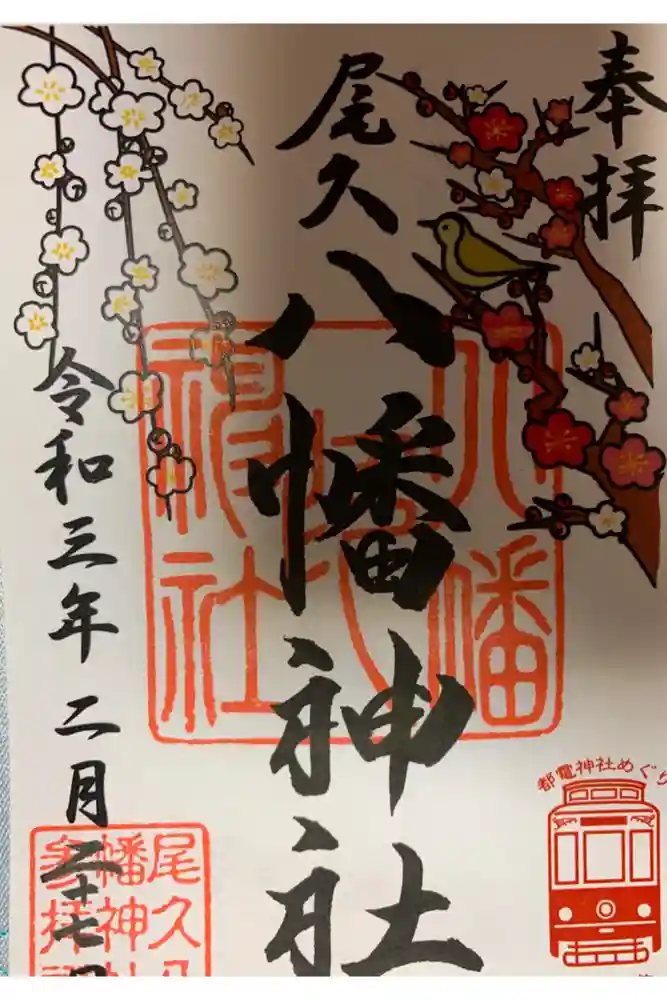 奉拝
尾久
八幡神社
令和三年 二月 二十七日
八幡
神社
都電神社めぐり
尾久八
幡神社
参拝